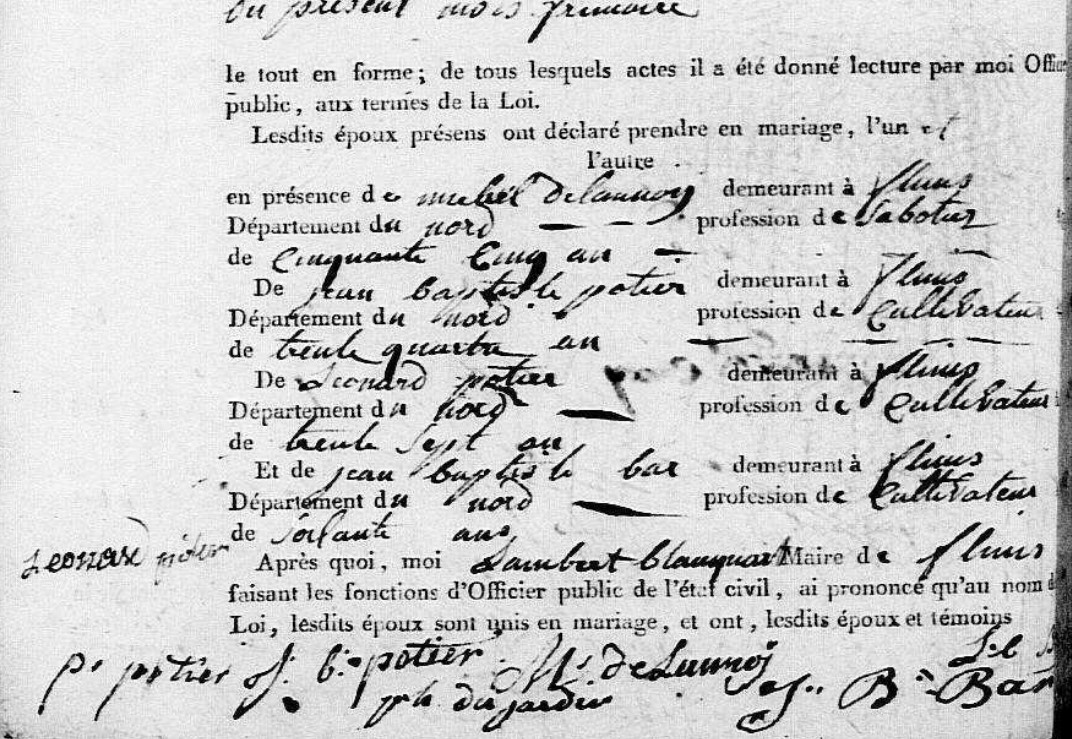 du présent mois frimaire
le tout en forme; de tous lesquels actes il a été donné lecture par moi Offici
public, aux termes de la Loi.
Lesdits époux présens ont déclaré prendre en mariage, l'un et
l'autre
en présence de michel delaunoy demeurant à flins
Département du nord profession de Sabotier
de Cinquante Cinq an
De jean baptiste potier demeurant à flins
Département du nord profession de Cultivateur
de trente quatre an
De Leonard potier demeurant à flins
Département du nord profession de Cultivateur
de trente Sept an
Et de jean baptiste bar demeurant à flins
Département du nord profession de Cultivateur
de soisante ans
Leonard potier
Après quoi, moi Lambert blanquart Maire de flins
faisant les fonctions d'Officier public de l'état civil, ai prononcé qu'au nom d
Loi, lesdits époux sont unis en mariage, et ont, lesdits époux et témoins
pr potier J. b. potier M. de Launoy L.
ph dujardin J. B. Bar